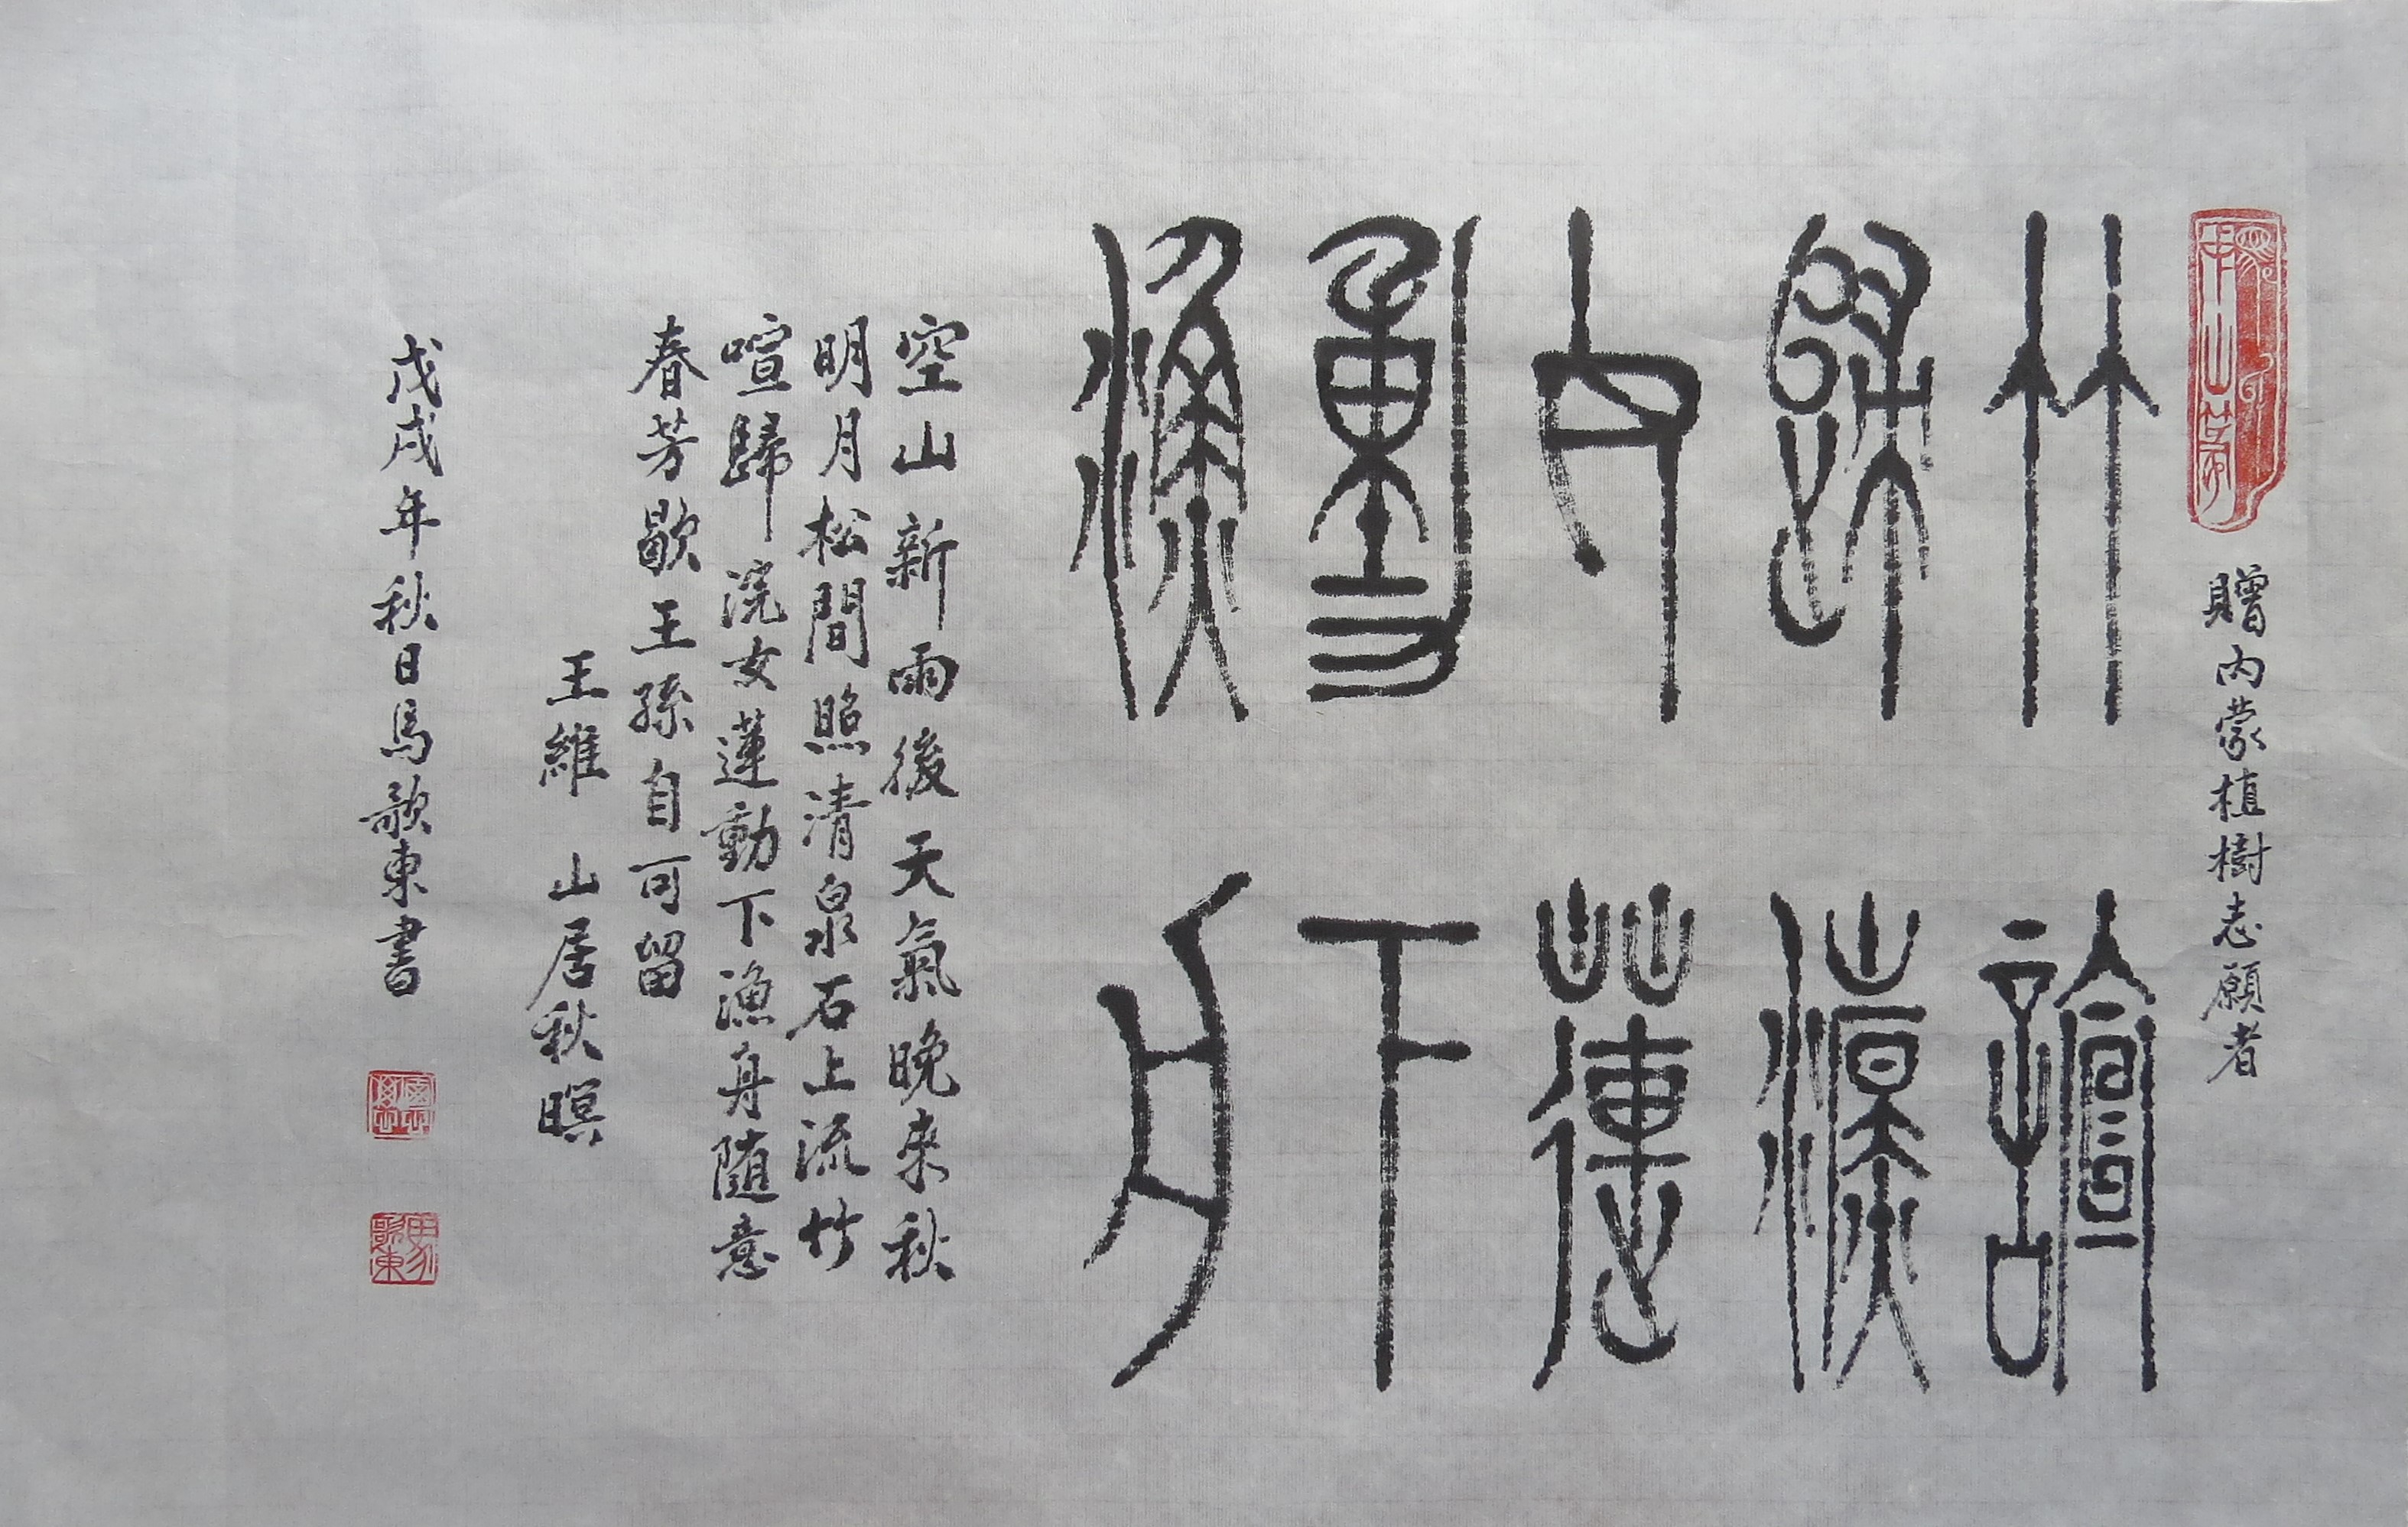 贈内蒙植樹志願者
竹諠
歸浣
女蓮
動下
漁舟
空山新雨後天氣晚来秋
明月松間照清泉石上流竹
喧歸浣女蓮動下漁舟隨意
春芳歇王孫自可留
王維 山居秋暝
戊戌年秋日馬歌東書